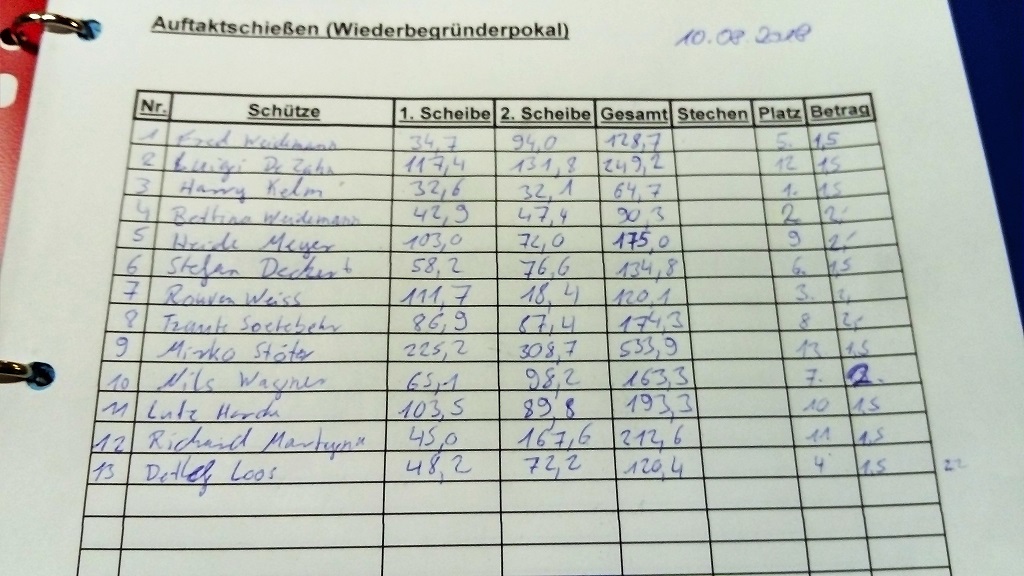 Auftaktschießen (Wiederbegründerpokal) 10.08.2018
Nr. Schütze 1. Scheibe 2. Scheibe Gesamt Stechen Platz Betrag
1 Fred Weidemann 34,7 94,0 128,7 5. 1,5
2 Luigi De Zahn 117,4 131,8 249,2 12 1,5
3 Harry Kelm 32,6 32,1 64,7 1. 1,5
4 Bettina Weidemann 42,9 47,4 90,3 2. 2,-
5 Heide Meyer 103,0 72,0 175,0 9 2,-
6 Stefan Deckert 58,2 76,6 134,8 6. 1,5
7 Rouven Weiss 111,7 18,4 120,1 3. 2,
8 Traute Soetebehr 86,9 87,4 174,3 8 2,-
9 Mirko Stöter 225,2 308,7 533,9 13 1,5
10 Nils Wagner 65,1 98,2 163,3 7. 2.
11 Lutz 103,5 89,8 193,3 10 1,5
12 Richard Martynu 45,0 167,6 212,6 11 1,5
13 Detlef Loos 48,2 72,2 120,4 4 1,5 22